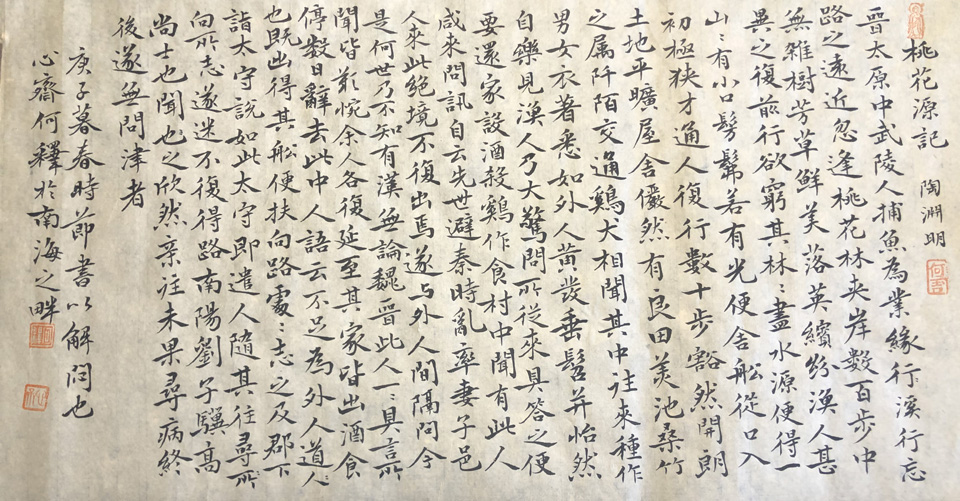 桃花源記
陶淵明
晉太原中武陵人捕魚為業緣行溪行忘
路之遠近忽逢桃花林夹岸数百步中
無雜樹芳草鮮美落英繽紛渙人甚
異之復前行欲窮其林〻盡水源便得一
山〻有小口髣髴若有光便舍船從口入
初極狹才通人復行數十步豁然開朗
土地平曠屋舍儼然有良田美池桑竹
之属阡陌交通鷄犬相聞其中往來種作
男女衣著悉如外人黄发垂髫并怡然
自樂見渔人乃大驚問所從來具答之便
要還家設酒殺鷄作食村中聞有此人
咸来問訊自云先世避秦時亂率妻子邑
人來此絕境不復出焉遂与外人間隔问今
是何世乃不知有漢無論魏晉此人一〻具言所
聞皆歎惋余人各復延至其家皆出酒食
停数日辭去此中人語云不足為外人道也
既出得其船便扶向路處〻志之及郡下
詣太守説如此太守即遣人隨其往尋所
向所志遂迷不復得路南陽劉子驥高
尚士也聞也之欣然亲往未果尋病終
後遂無問津者
庚子暮春時節書以解闷也
心齋何釋於南海之畔